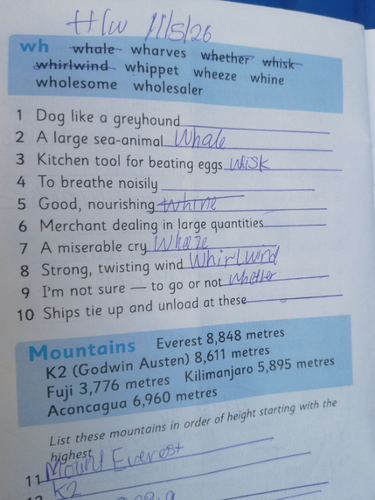 H/w 11/5/26
wh whale wharves whether whisk
whirlwind whippet wheeze whine
wholesome wholesaler
1 Dog like a greyhound
2 A large sea-animal Whale
3 Kitchen tool for beating eggs whisk
4 To breathe noisily
5 Good, nourishing whine
6 Merchant dealing in large quantities
7 A miserable cry
8 Strong, twisting wind Whirlwind
9 I'm not sure — to go or not whether
10 Ships tie up and unload at these
Mountains Everest 8,848 metres
K2 (Godwin Austen) 8,611 metres
Fuji 3,776 metres Kilimanjaro 5,895 metres
Aconcagua 6,960 metres
List these mountains in order of height starting with the
highest
11 Mount Everest
K2